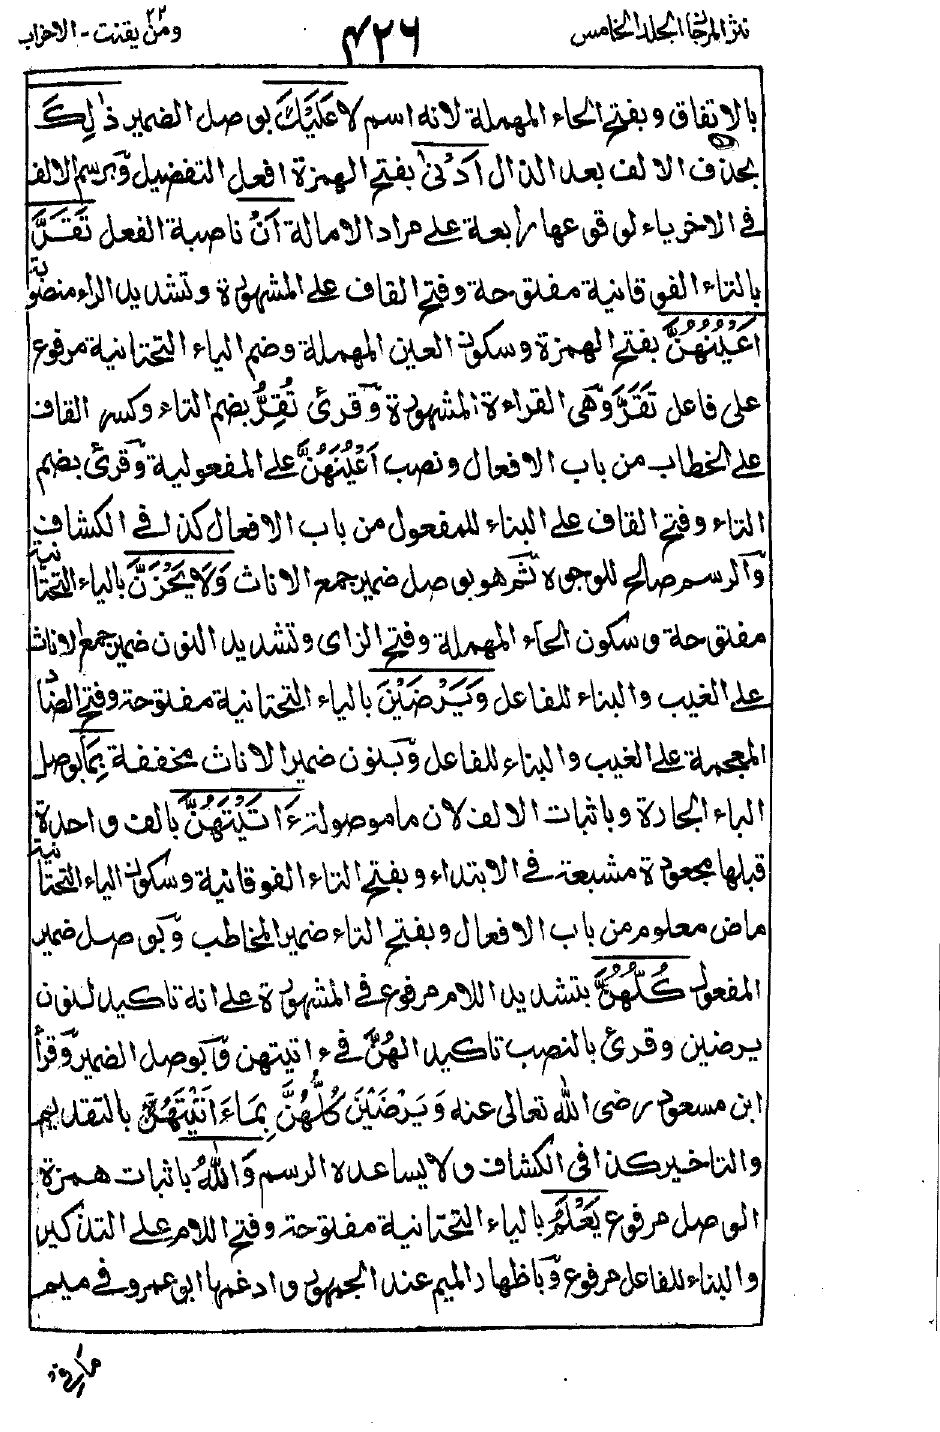 نثر المرجان المجلد الخامس
٤٢٦
ومن يقنت ٢٢ - الاحزاب
بالاتفاق وبفتح الحاء المهملة لانه اسم لا عَلَيْكَ بوصل الضمير ذٰلِكَ
بحذف الالف بعد الذال اَدْنٰى بفتح الهمزة افعل التفضيل وَبرسم الالف
فى الاخر ياء لوقوعها رابعة على مراد الامالة اَنْ ناصبة الفعل تَقَرَّ
بالتاء الفوقانية مفتوحة وفتح القاف على المشهورة وتشديد الراء منصوبة
اَعْيُنُهُنَّ بفتح الهمزة وسكون العين المهملة وضم الياء التحتانية مرفوع
على فاعل تَقَرَّ وَهى القراءة المشهورة وَقرئ تُقِرُّ بضم التاء وكسر القاف
على الخطاب من باب الافعال ونصب اَعْيُنَهُنَّ على المفعولية وَقرئ بضم
التاء وفتح القاف على البناء للمفعول من باب الافعال كذا فى الكشاف
وَالرسم صالح للوجوه ثَم هو بوصل ضمير جمع الاناث وَلَا يَحْزَنَّ بالياء التحتانية
مفتوحة وسكون الحاء المهملة وفتح الزاى وتشديد النون ضمير جمع الاناث
على الغيب والبناء للفاعل وَيَرْضَيْنَ بالياء التحتانية مفتوحة وفتح الضاد
المعجمة على الغيب والبناء للفاعل وَبنون ضمير الاناث مخففة بِمَا بوصل
الباء الجارة وباثبات الالف لان ما موصولة ءَاتَيْتَهُنَّ بالف واحدة
قبلها مجعودة مشبعة فى الابتداء وبفتح التاء الفوقانية وسكون الياء التحتانية
ماض معلوم من باب الافعال وبفتح التاء ضمير المخاطب وَبوصل ضمير
المفعول كُلُّهُنَّ بتشديد اللام مرفوع فى المشهورة على انه تاكيد لنون
يرضين وقرئ بالنصب تاكيد الهُنَّ فى ءاتيتهن وَبوصل الضمير وَقرأ
ابن مسعود رضى الله تعالى عنه وَيَرْضَيْنَ كُلُّهُنَّ بِمَا ءَاتَيْتَهُنَّ بالتقديم
والتاخير كذا فى الكشاف ولا يساعده الرسم وَاللّٰهُ باثبات همزة
الوصل مرفوع يَعْلَمُ بالياء التحتانية مفتوحة وفتح اللام على التذكير
والبناء للفاعل مرفوع وَباظهار الميم عند الجمهور وادغمها ابو عمرو فى ميم